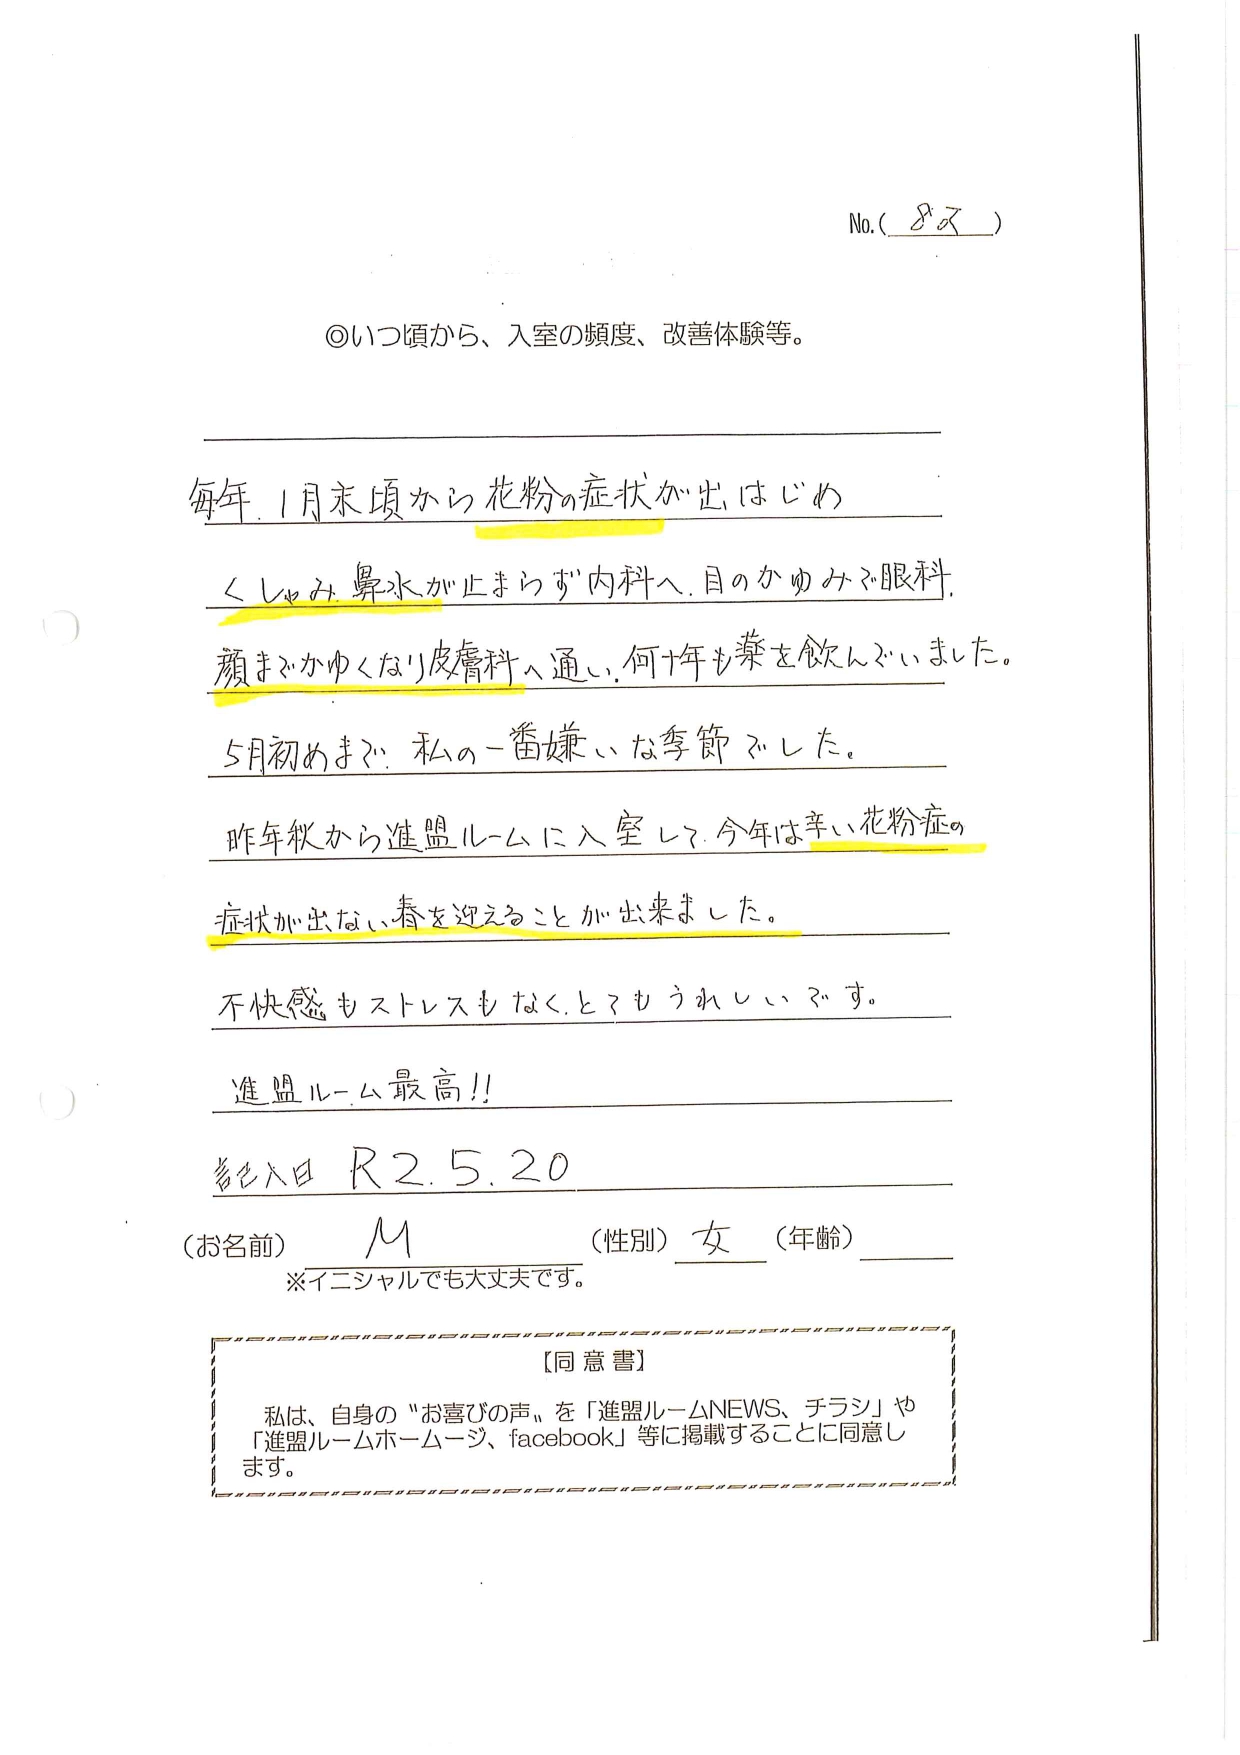 No.( 82 )
◎いつ頃から、入室の頻度、改善体験等。
毎年、1月末頃から花粉の症状が出はじめ
くしゃみ、鼻水が止まらず内科へ、目のかゆみで眼科、
顔までかゆくなり皮膚科へ通い、何十年も薬を飲んでいました。
5月初めまで、私の一番嫌いな季節でした。
昨年秋から進盟ルームに入室して、今年は辛い花粉症の
症状が出ない春を迎えることが出来ました。
不快感もストレスもなく、とてもうれしいです。
進盟ルーム最高!!
記入日 R2.5.20
(お名前) M (性別) 女 (年齢)
※イニシャルでも大丈夫です。
【同意書】
私は、自身の〝お喜びの声〟を「進盟ルームNEWS、チラシ」や
「進盟ルームホームージ、facebook」等に掲載することに同意し
ます。